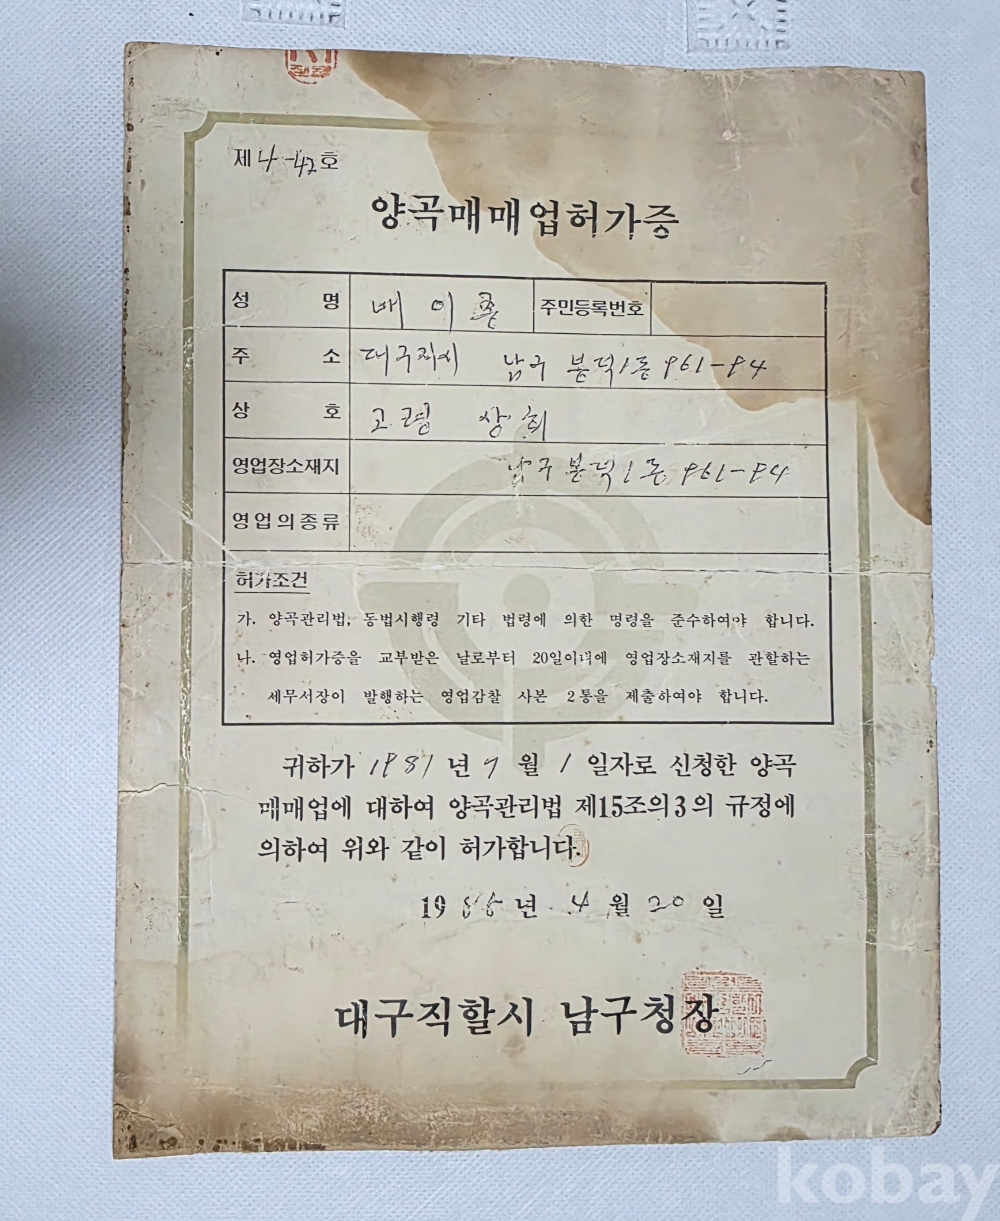 제 4-42 호
양곡매매업허가증
성 명 배 이 주민등록번호
주 소 대구직시 남구 봉덕1동 961-94
상 호 고령 상회
영업장소재지 남구 봉덕1동 961-94
영업의종류
허가조건
가. 양곡관리법, 동법시행령 기타 법령에 의한 명령을 준수하여야 합니다.
나. 영업허가증을 교부받은 날로부터 20일이내에 영업장소재지를 관할하는
세무서장이 발행하는 영업감찰 사본 2통을 제출하여야 합니다.
귀하가 1981년 7월 1일자로 신청한 양곡
매매업에 대하여 양곡관리법 제15조의3의 규정에
의하여 위와 같이 허가합니다.
19 년 4월 20일
대구직할시 남구청장
kobay